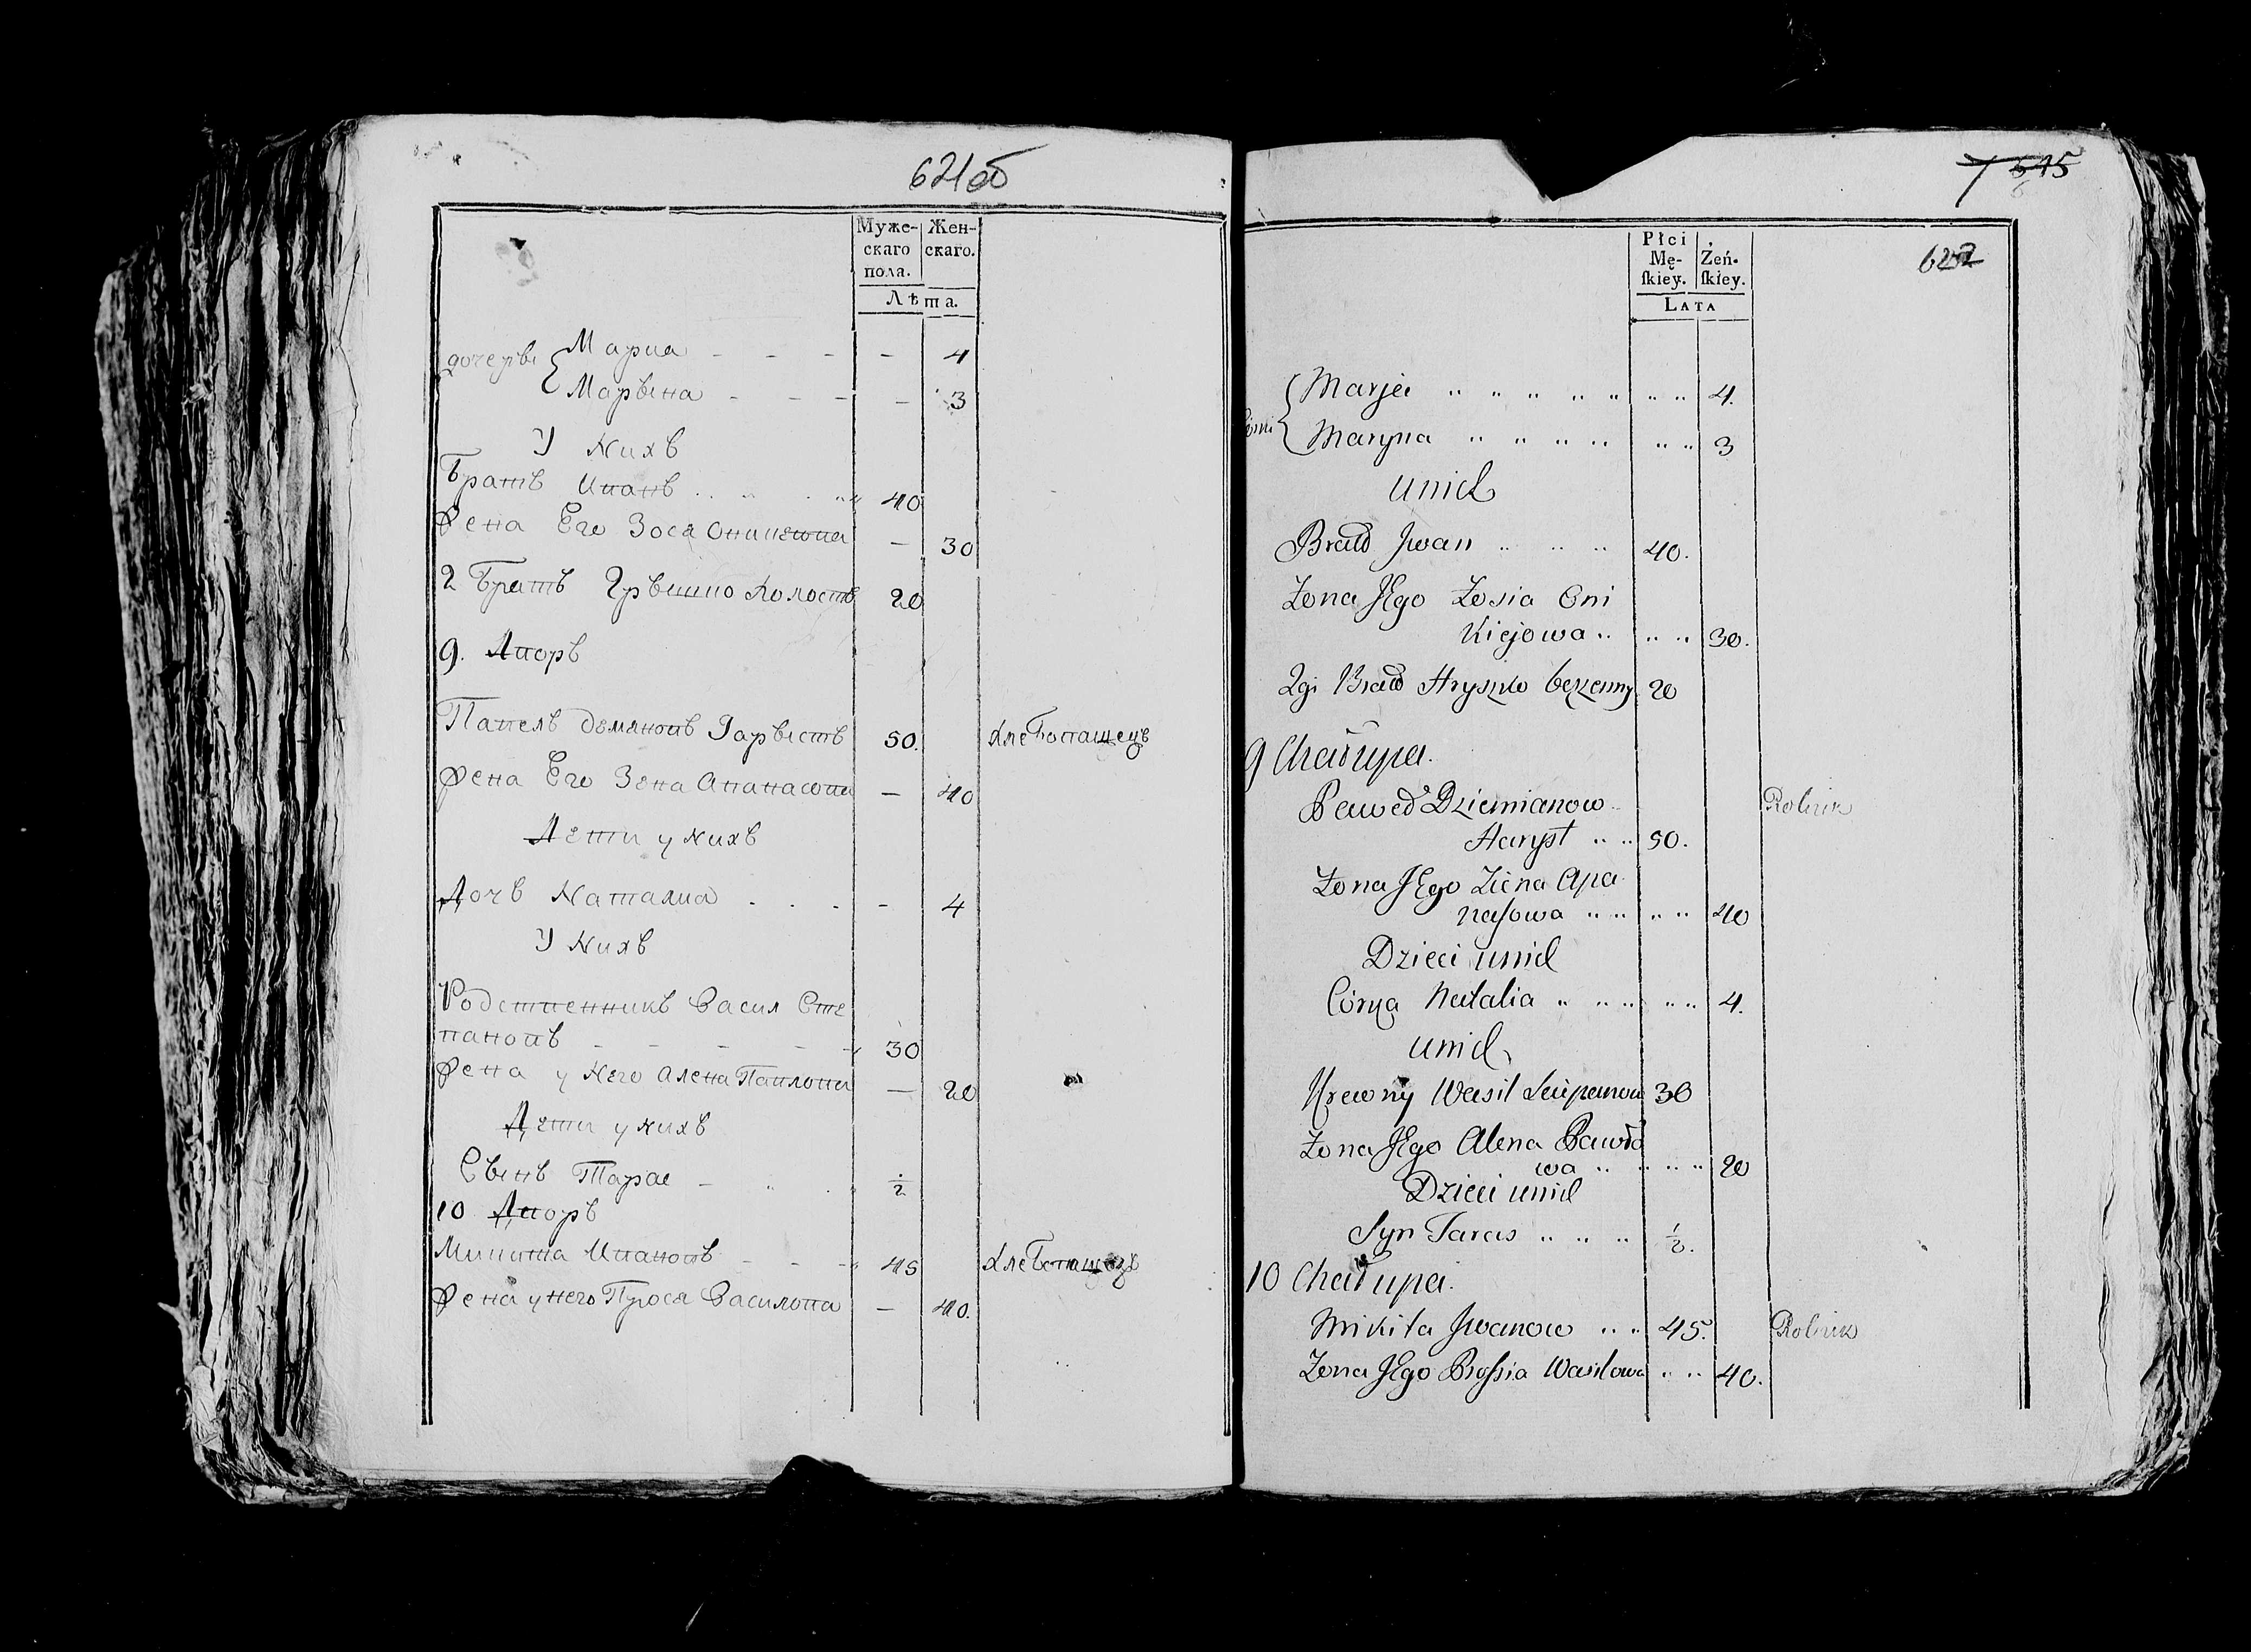 621об
Муже-
скаго
пола.
Жен-
скаго.
Лѣта.
дочеры
Мариа - - - - 4
Марьша - - - - 3
У Нихъ
Братъ Иванъ 40
Жена Его Зося Оникеюва - 30
2 Братъ Грышко Холостъ 20
9. Дворъ
Павелъ Демяновъ Гарыстъ 50. Хлебопашецъ
Жена Его Зена Апанасова - 40
Дети у нихъ
Дочъ Наталиа . . . - 4
У Нихъ
Родственникъ Васил Сте
пановъ - - - - - 30
Жена у Него Алена Павлова - 20
Дети у нихъ
Сынъ Тарас - 1/2
10 Дворъ
Микита Ивановъ - - - 45 Хлебопашецъ
Жена у него Прося Василова - 40.
515
622
Płci
Mę-
ſkiey.
Żeń-
ſkiey.
LATA
Marja 4.
Maryna 3
unich
Bratt Jwan 40.
Żona JEgo Zosia Oni
Kiejowa 30.
2gi Bratt Hryszko bezżenny 20
9 Chałupa.
Paweł Dziemianow
Haryst 50. Rolnik
Żona JEgo Ziena Apa
naſowa 40
Dzieci unich
Córka Natalia 4.
unich
Krewny Wasil Sciepanow 30
Żona JEgo Alena Pawło
wa 20
Dzieci unich
Syn Taras 1/2.
10 Chałupa.
Mikita Jwanow 45. Rolnik
Żona JEgo Proſsia Wasilowa 40.